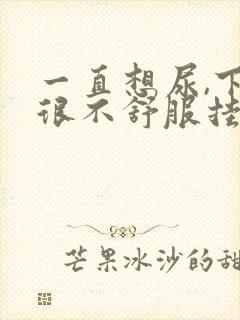 一直想尿,下
很不舒服挂
芒果冰沙的甜